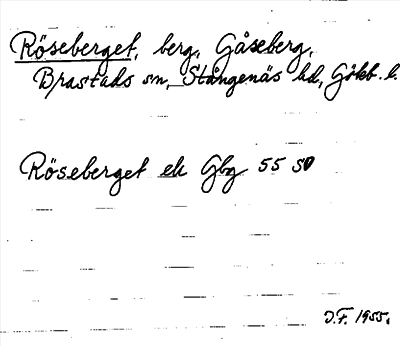 Röseberget, berg, Gåseberg,
Brastads sn, Stångenäs hd, Gökb. l.
Röseberget ek Gbg 55 SV
J.F. 1955.